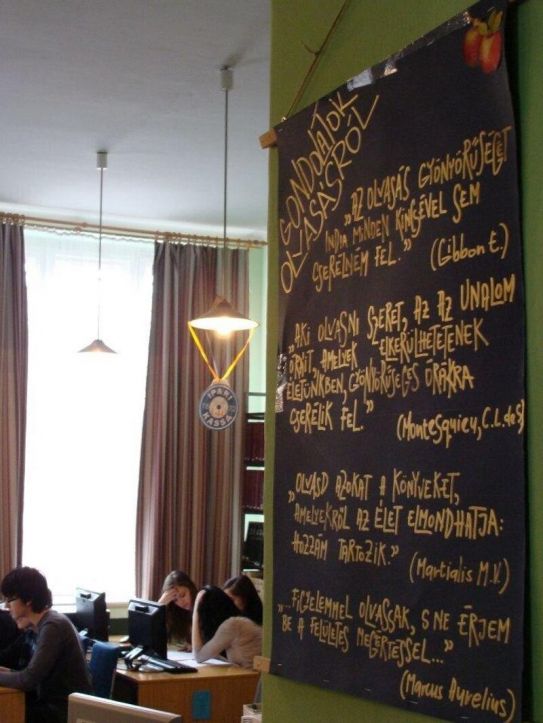 GONDOLATOK
OLVASÁSRÓL
„AZ OLVASÁS GYÖNYÖRŰSÉGÉT
INDIA MINDEN KINCSÉVEL SEM
CSERÉLNÉM FEL.”
(Gibbon E.)
„AKI OLVASNI SZERET, AZ AZ UNALOM
ÓRÁIT AMELYEK ELKERÜLHETETLENEK
ÉLETÜNKBEN, GYÖNYÖRŰSÉGES ÓRÁKRA
CSERÉLIK FEL.”
(Montesquieu, C.L. de S)
„OLVASD AZOKAT A KÖNYVEKET,
AMELYEKRŐL AZ ÉLET ELMONDHATJA:
HOZZÁM TARTOZIK.”
(Martialis M.V.)
„...FIGYELEMMEL OLVASSAK, S NE ÉRJEM
BE A FELÜLETES MEGÉRTÉSSEL...”
(Marcus Aurelius)
IPARI
KASSA